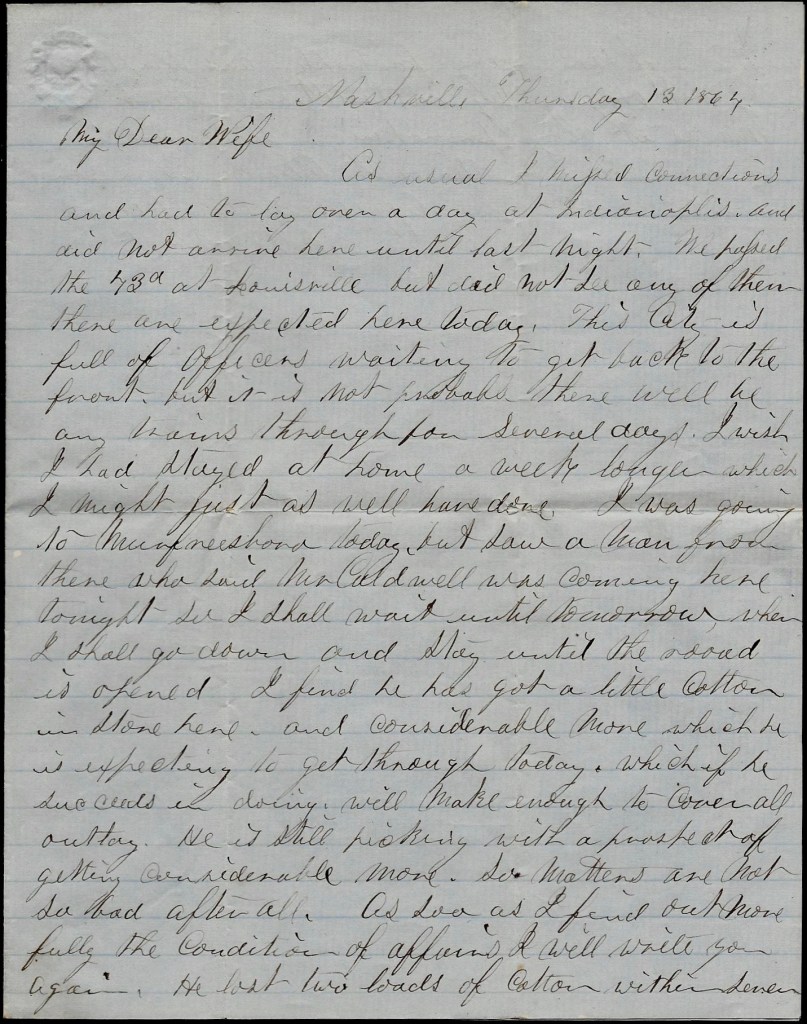 Nashville, Thursday 13 1864
My Dear Wife
As usual I missed connections
and had to lay over a day at Indianoplis. and
did not arrive here until last night. We passed
the 73d at Louisville but did not see any of them
there are expected here today. This City is
full of Officers waiting to get back to the
front. but it is not probable there will be
any trains through for several days. I wish
I had stayed at home a week longer which
I might just as well have done. I was going
to Murfreesboro today, but saw a man from
there who said Mr Caldwell was coming here
tonight so I shall wait until tomorrow, when
I shall go down and stay until the rooad
is opened I find he has got a little Cotton
in store here. and considerable more which he
is expecting to get through today. which if he
succeeds in doing. will make enough to cover all
outlay. He is still picking with a prospect of
getting considerable more. So matters are not
so bad after all. As soo as I find out more
fully the Condition of affairs I will write you
again. He lost two loads of Cotton within seven